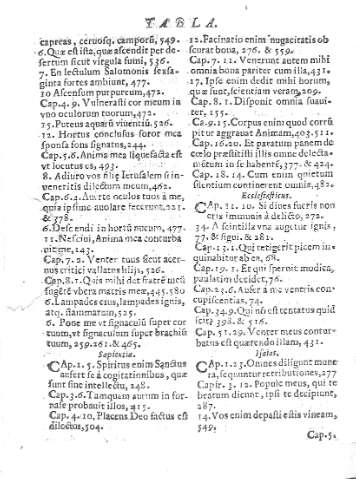 TABLA.
capreas, ceruosq. camporũ, 549.
6. Quæ est ista, quæ ascendit per desertum
sicut virgula fumi, 536.
7. En lectulum Salomonis sexaginta
fortes ambiunt, 477.
10 Ascensum purpureum, 472.
Cap. 4. 9. Vulnerasti cor meum in
vno oculorum tuorum, 472.
15. Puteus aquarũ viuentiũ. 526.
12. Hortus conclusus soror mea
sponsa fons signatus, 244.
Cap. 5. 6. Anima mea liquefacta est
vt locutus es, 493.
8. Adiuro vos filię Ierusalem si inueneritis
dilectum meum, 462.
Cap. 6. 4. Auerte oculos tuos à me,
quia ipsi me auolare fecerunt, 221.
& 378.
6. Descendi in hortũ meum, 477.
11. Nesciui, Anima mea conturbauit
me, 147.
Cap. 7. 2. Venter tuus sicut aceruus
tritici vallatus lilijs, 526.
Cap. 8. 1. Quis mihi det fratrẽ meũ
sugẽtẽ vbera matris meæ, 445. 580
6. Lampades eius, lampades ignis,
atq. flammarum, 525.
6. Pone me vt signaculũ super cor
tuum, vt signaculum super brachiũ
tuum, 259. 261. & 465.
Sapientiæ.
CAp. 1. 5. Spiritus enim Sanctus
aufert se à cogitationibus, quæ
sunt sine intellectu, 248.
Cap. 3. 6. Tamquam aurum in fornale
probauit illos, 415.
Cap. 4. 10. Placens Deo factus est
dilectus, 504.
12. Facinatio enim nugacitatis obscurat
bona, 276. & 559.
Cap. 7. 11. Venerunt autem mihi
omnia bona pariter cum illa, 431.
17. Ipse enim dedit mihi horum,
quæ sunt, scientiam veram, 209.
Cap. 8. 1. Disponit omnia suauiter,
155.
Cap. 9. 15. Corpus enim quod corrũpitur
aggrauat Animam, 403. 511.
Cap. 16. 20. Et paratum panem de
cœlo præstitisti illis omne delectamẽtum
in se habentẽ, 377. & 424.
Cap. 18. 14. Cum enim quietum
silentium continerent omnia, 482.
Ecclesiasticus.
CAp. 11. 10. Si diues fueris non
eris immunis à delicto, 272.
34. A scintilla vna augetur ignis,
77. & sigui. & 281.
Cap. 13. 1. Qui tetigerit picem inquinabitur
ab ea, 68.
Cap. 19. 1. Et qui spernit modica,
paulatim decidet, 76.
Cap. 23. 6. Aufer à me ventris concupiscentias,
74.
Cap. 34. 9. Qui nõ est tentatus quid
scit? 398. & 516.
Cap. 51. 29. Venter meus conturbatus
est quærendo illam, 431.
Isaiæ.
CAp. 1. 23. Omnes diligunt munera,
sequuntur retributiones, 277
Cap. 3. 12. Popule meus, qui te
beatum dicunt, ipsi te decipiunt,
287.
14. Vos enim depasti estis vineam,
549.
Cap. 5.